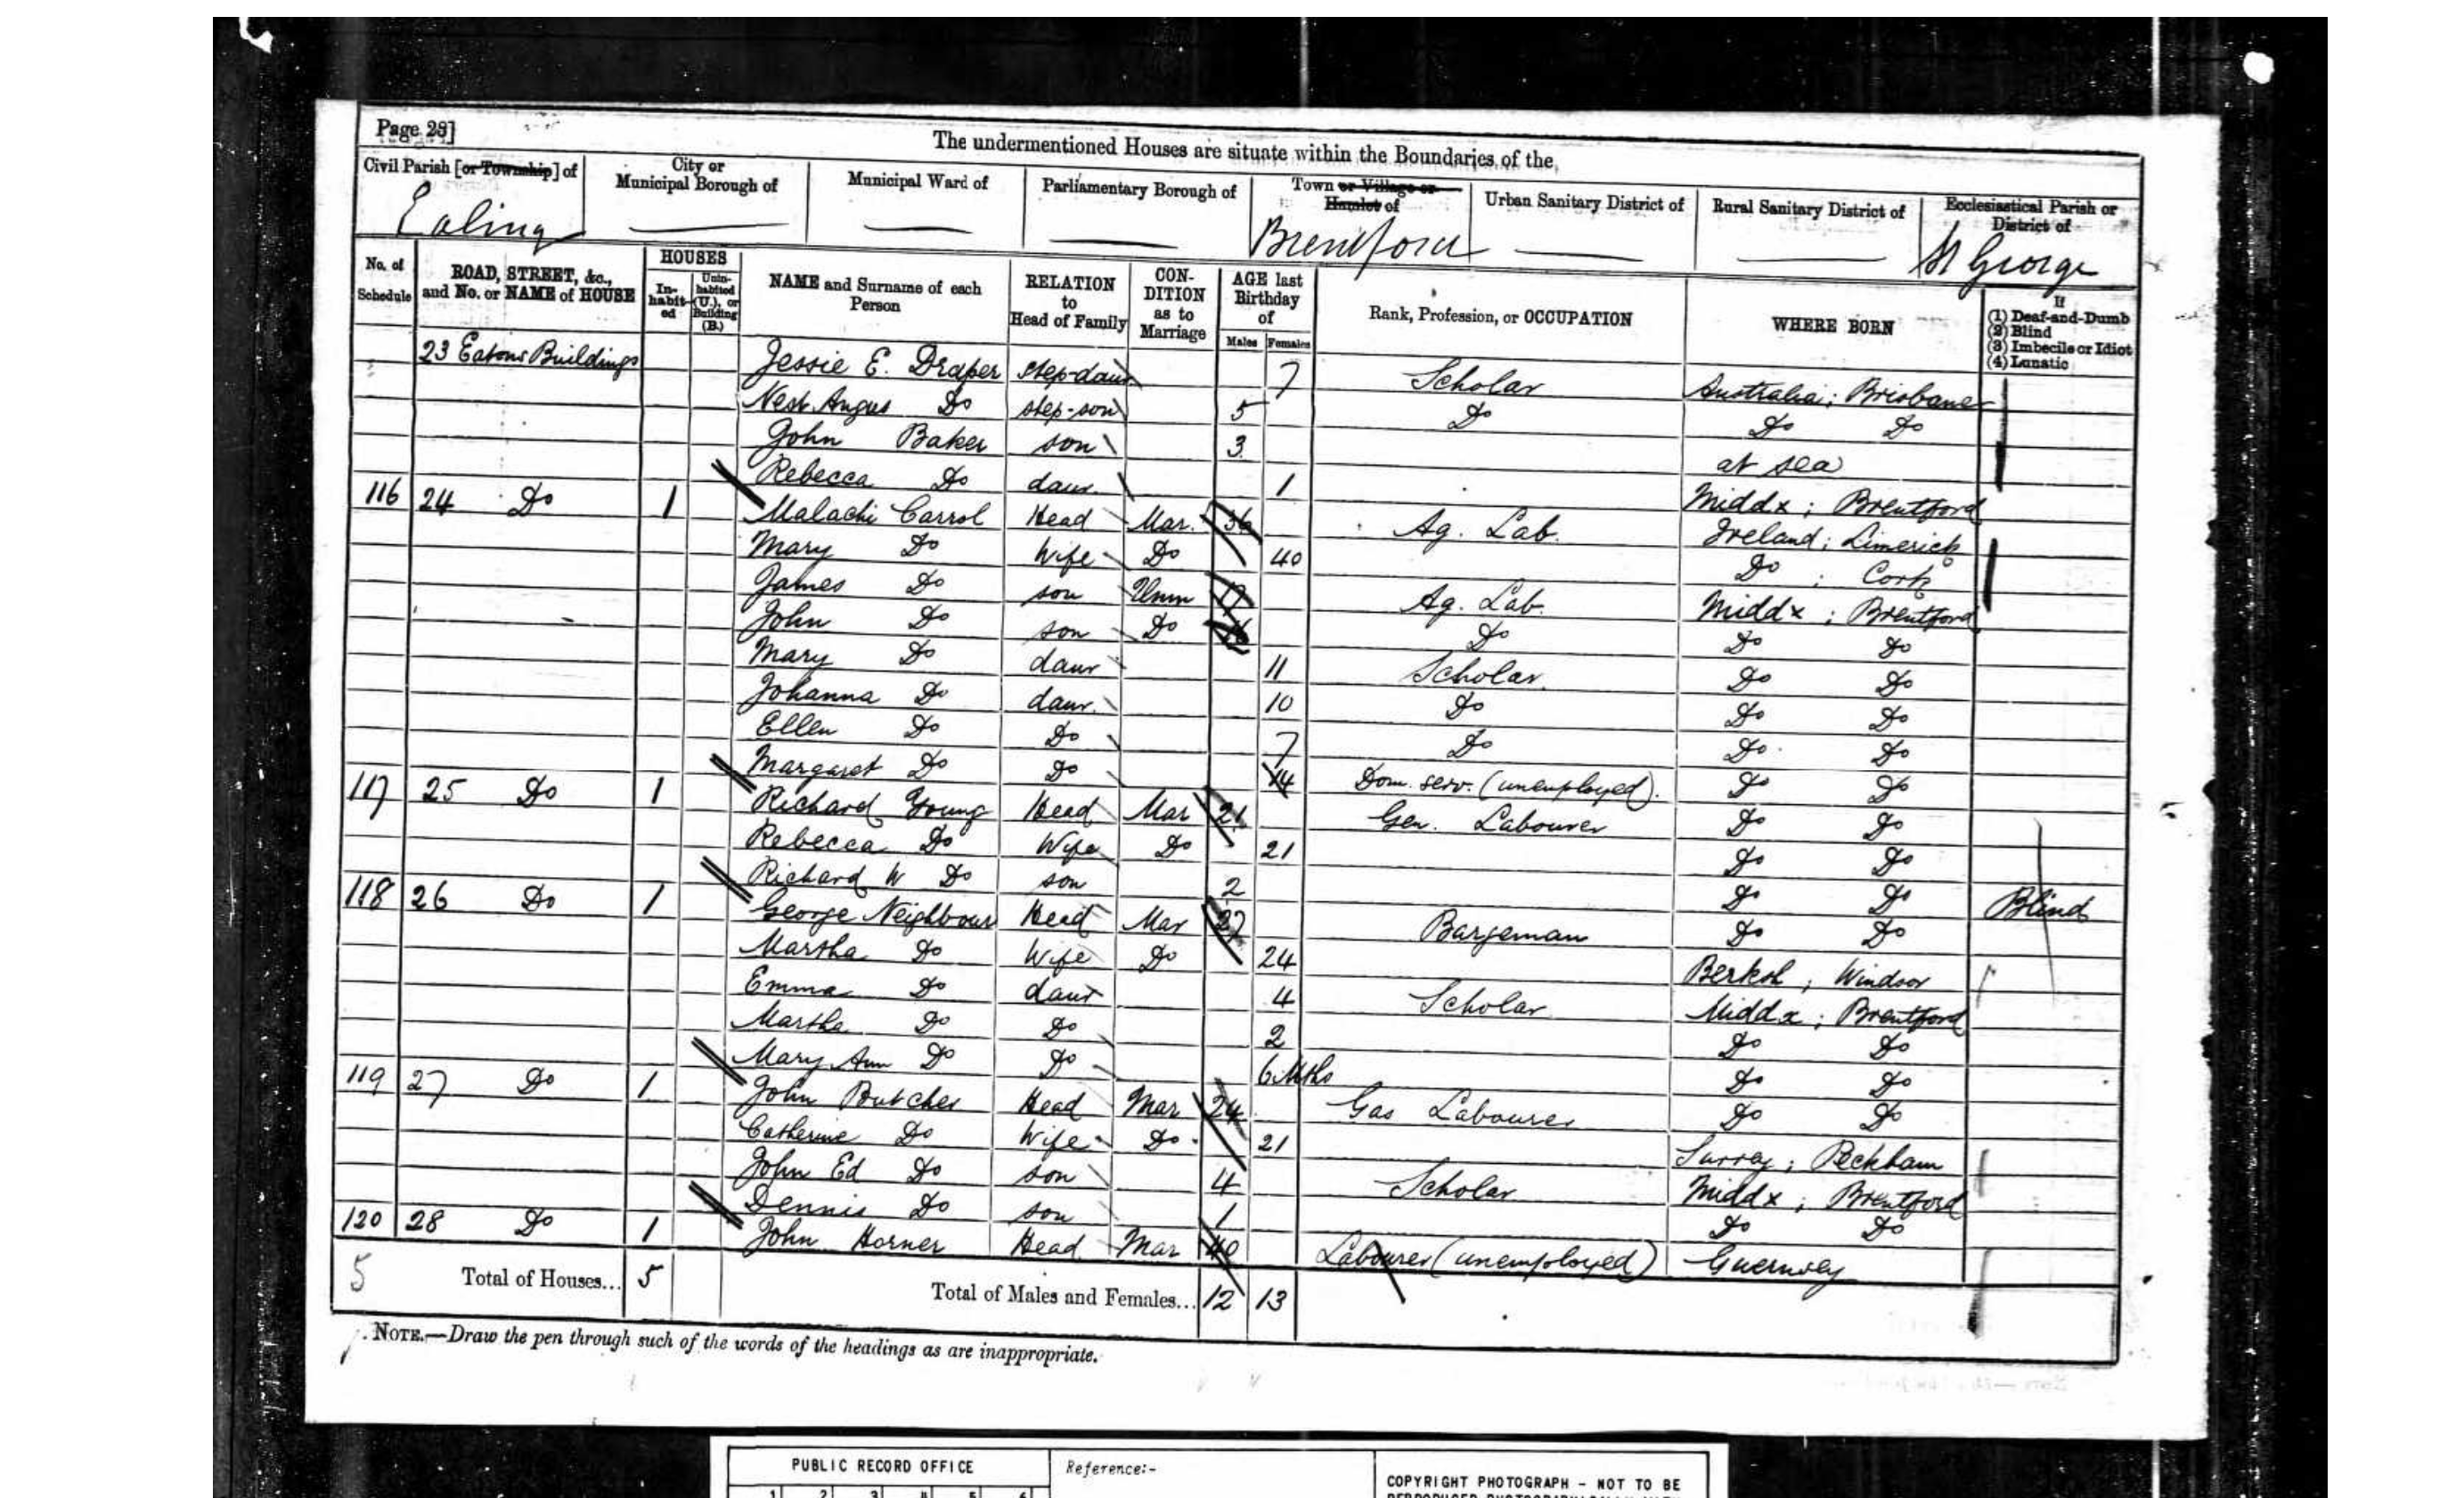 Page 28]
The undermentioned Houses are situate within the Boundaries of the
Civil Parish [or Township] of
City or Municipal Borough of
Municipal Ward of
Parliamentary Borough of
Town or Village or Hamlet of
Urban Sanitary District of
Rural Sanitary District of
Ecclesiastical Parish or District of
Ealing Brentford St George
No. of Schedule
ROAD, STREET, &c., and No. or NAME of HOUSE
HOUSES
In-habit-ed
Unin-habited (U.), or Building (B.)
NAME and Surname of each Person
RELATION to Head of Family
CON-DITION as to Marriage
AGE last Birthday of
Males Females
Rank, Profession, or OCCUPATION
WHERE BORN
If
(1) Deaf-and-Dumb
(2) Blind
(3) Imbecile or Idiot
(4) Lunatic
23 Eatons Buildings Jessie E. Draper step-daur 7 Scholar Australia; Brisbane
Angus Do step-son 5 Do Do Do
John Baker son 3 at sea
Rebecca Do daur. 1 Middx; Brentford
116 24 Do 1 Malachi Carrol Head Mar. 36 Ag. Lab. Ireland; Limerick
Mary Do Wife Do 40 Do; Cork
James Do son Unm 17 Ag. Lab. Middx; Brentford
John Do son Do 16 Do Do Do
Mary Do daur 11 Scholar Do Do
Johanna Do daur. 10 Do Do Do
Ellen Do Do 7 Do Do Do
Margaret Do Do 14 Dom. serv. (unemployed). Do Do
117 25 Do 1 Richard Young Head Mar 21 Gen. Labourer Do Do
Rebecca Do Wife Do 21 Do Do
Richard W Do son 2 Do Do Blind
118 26 Do 1 George Neighbour Head Mar 27 Bargeman Do Do
Martha Do Wife Do 24 Berksh; Windsor
Emma Do daur 4 Scholar Middx; Brentford
Martha Do Do 2 Do Do
Mary Ann Do Do 6 Mths Do Do
119 27 Do 1 John Butcher Head Mar 24 Gas Labourer Do Do
Catherine Do Wife Do 21 Surrey; Peckham
John Ed Do son 4 Scholar Middx; Brentford
Dennis Do son 1 Do Do
120 28 Do 1 John Horner Head Mar 40 Labourer (unemployed) Guernsey
5 Total of Houses... 5 Total of Males and Females... 12 13
NOTE.—Draw the pen through such of the words of the headings as are inappropriate.
PUBLIC RECORD OFFICE
Reference:-
COPYRIGHT PHOTOGRAPH - NOT TO BE
1 2 3 4 5 6